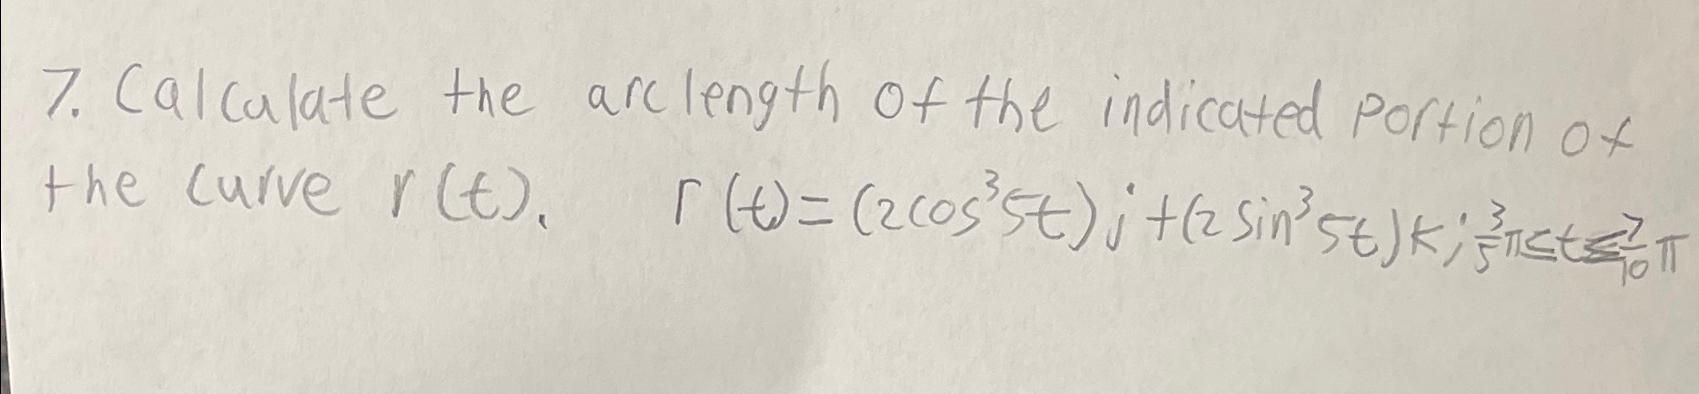 7. Calculate the arc length of the indicated portion of
the curve r(t). r(t)=(2cos³5t)j+(2 sin³ 5t)k; 3/5 π≤t≤7/10 π